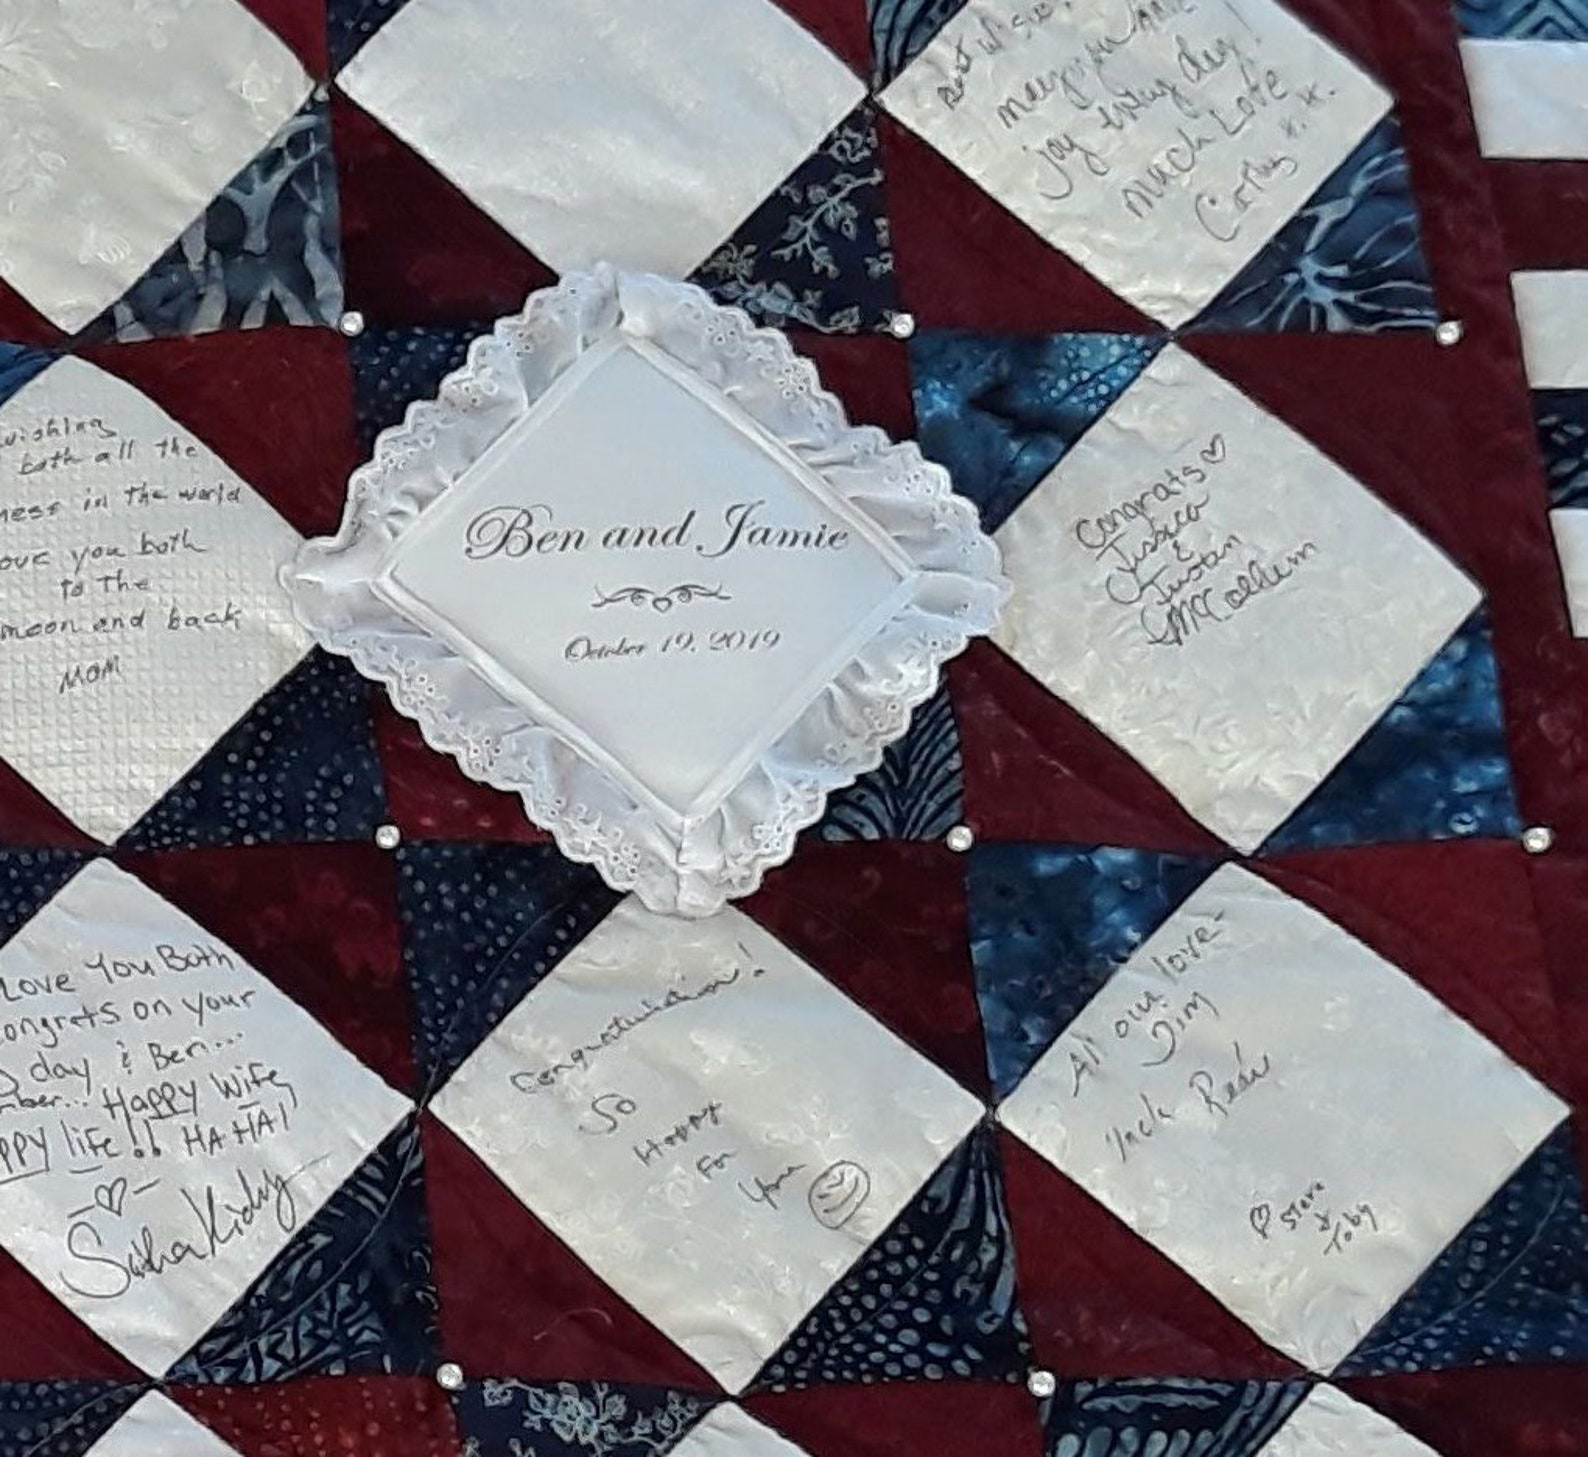 Best wishes!
may you have
joy every day!
much Love
Cathy
wishing
both all the
ness in the world
ove you both
to the
moon and back
MOM
Ben and Jamie
October 19, 2019
Congrats ♡
Jessica
&
Justin
Love You Both
ongrats on your
day & Ben...
mber... Happy Wife,
ppy life!! HA HA!
Sasha
Congratulations!
So
Happy
For
You
All our love -
Jim
♡ Steve
&
Toby